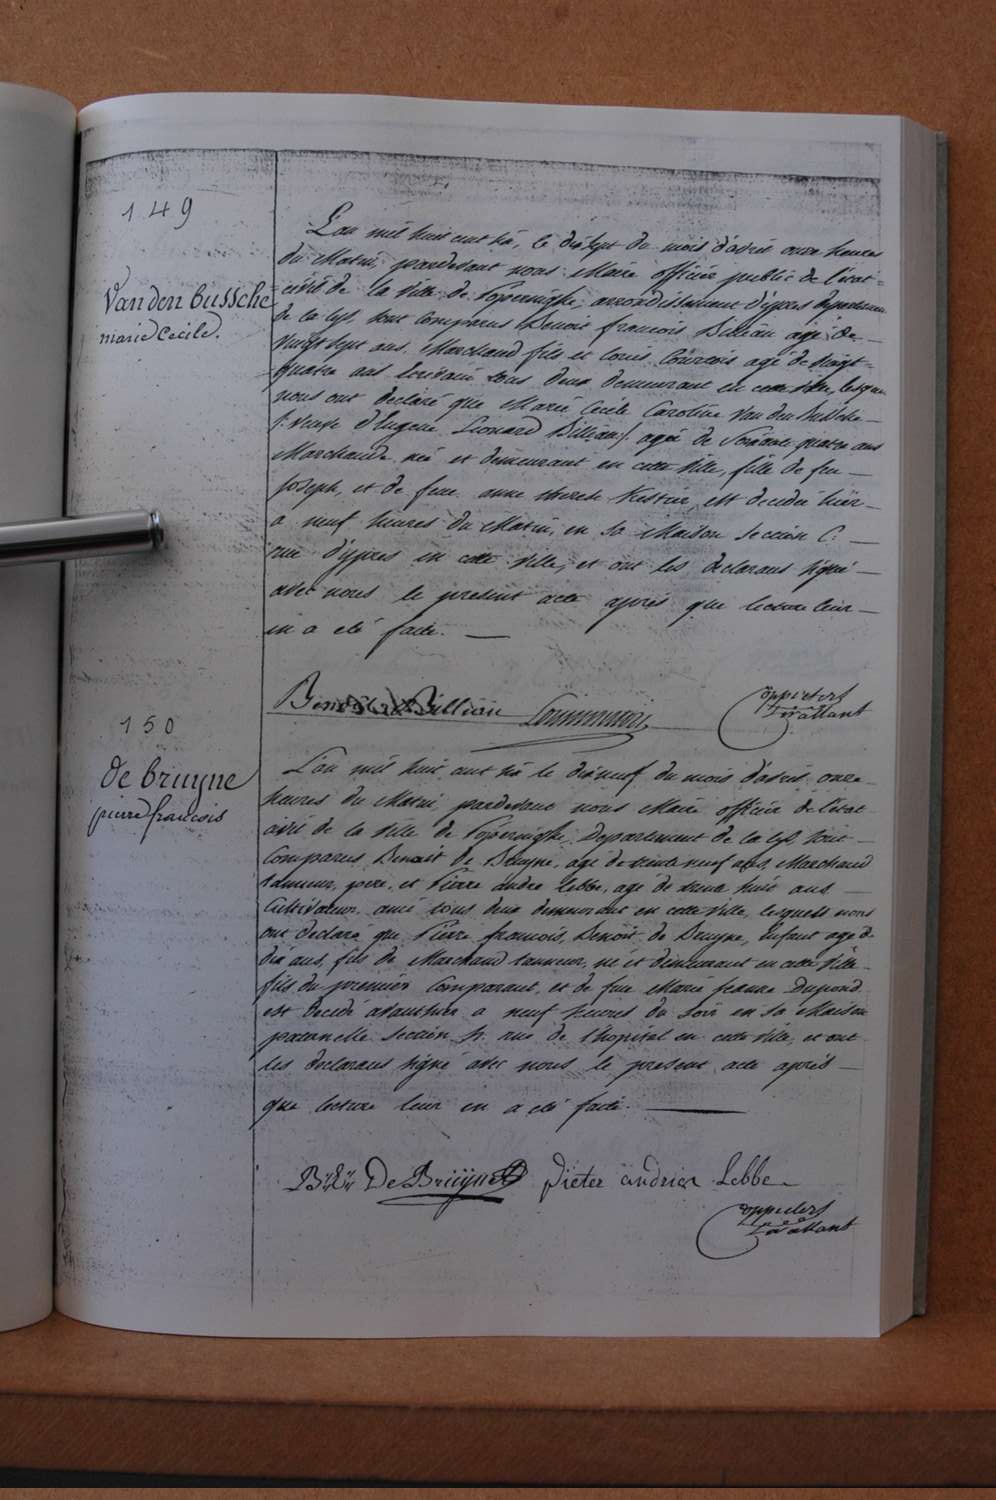 149
Van den bussche
marie Cecile.
L'an mil huit cent six, le dixsept du mois d'avril onze heures
du Matin, pardevant nous Maire officier public de l'état=
civil de la Ville de Poperinghe, arrondissement d'ypres Departement
de la Lys, sont Comparus Benoit francois Billiau agé de
vingt sept ans, Marchand fils et Louis agé de vingt=
quatre ans Ecrivain tous deux demeurant en cette ville, lesquels
nous ont declaré que Marie Cecile Caroline Van den bussche
/: veuve d'Eugene Leonard Billiau:/ agée de soixante quatre ans
Marchande, née et demeurant en cette Ville, fille de feu
Joseph, et de feue anne therese est decedée hier
a neuf heures du Matin, en sa Maison Section C:
rue d'ypres en cette Ville, et ont les declarans signé
avec nous le present acte après que lecture leur
en a eté faite.
Billiau
150
de bruyne
pierre francois
L'an mil huit cent six le dixneuf du mois d'avril onze
heures du Matin pardevant nous Maire officier de l'état
civil de la Ville de Poperinghe, Departement de la Lys, sont
Comparus Benoit de Bruyne, agé de trente neuf ans, Marchand
tanneur, pere, et Pierre andre Lebbe, agé de trente huit ans
Cultivateur, ami tous deux demeurant en cette Ville, lesquels nous
ont declaré que Pierre francois, Benoit de Bruyne, Enfant agé de
dix ans, fils de Marchand tanneur, né et demeurant en cette Ville
fils du premier Comparant, et de feue Marie Jeanne Dupond
est decedé avanthier a neuf heures du soir en sa Maison
paternelle Section rue de l'hopital en cette Ville, et ont
les declarans signé avec nous le present acte après
que lecture leur en a eté faite.
De Bruÿne Pieter andries Lebbe